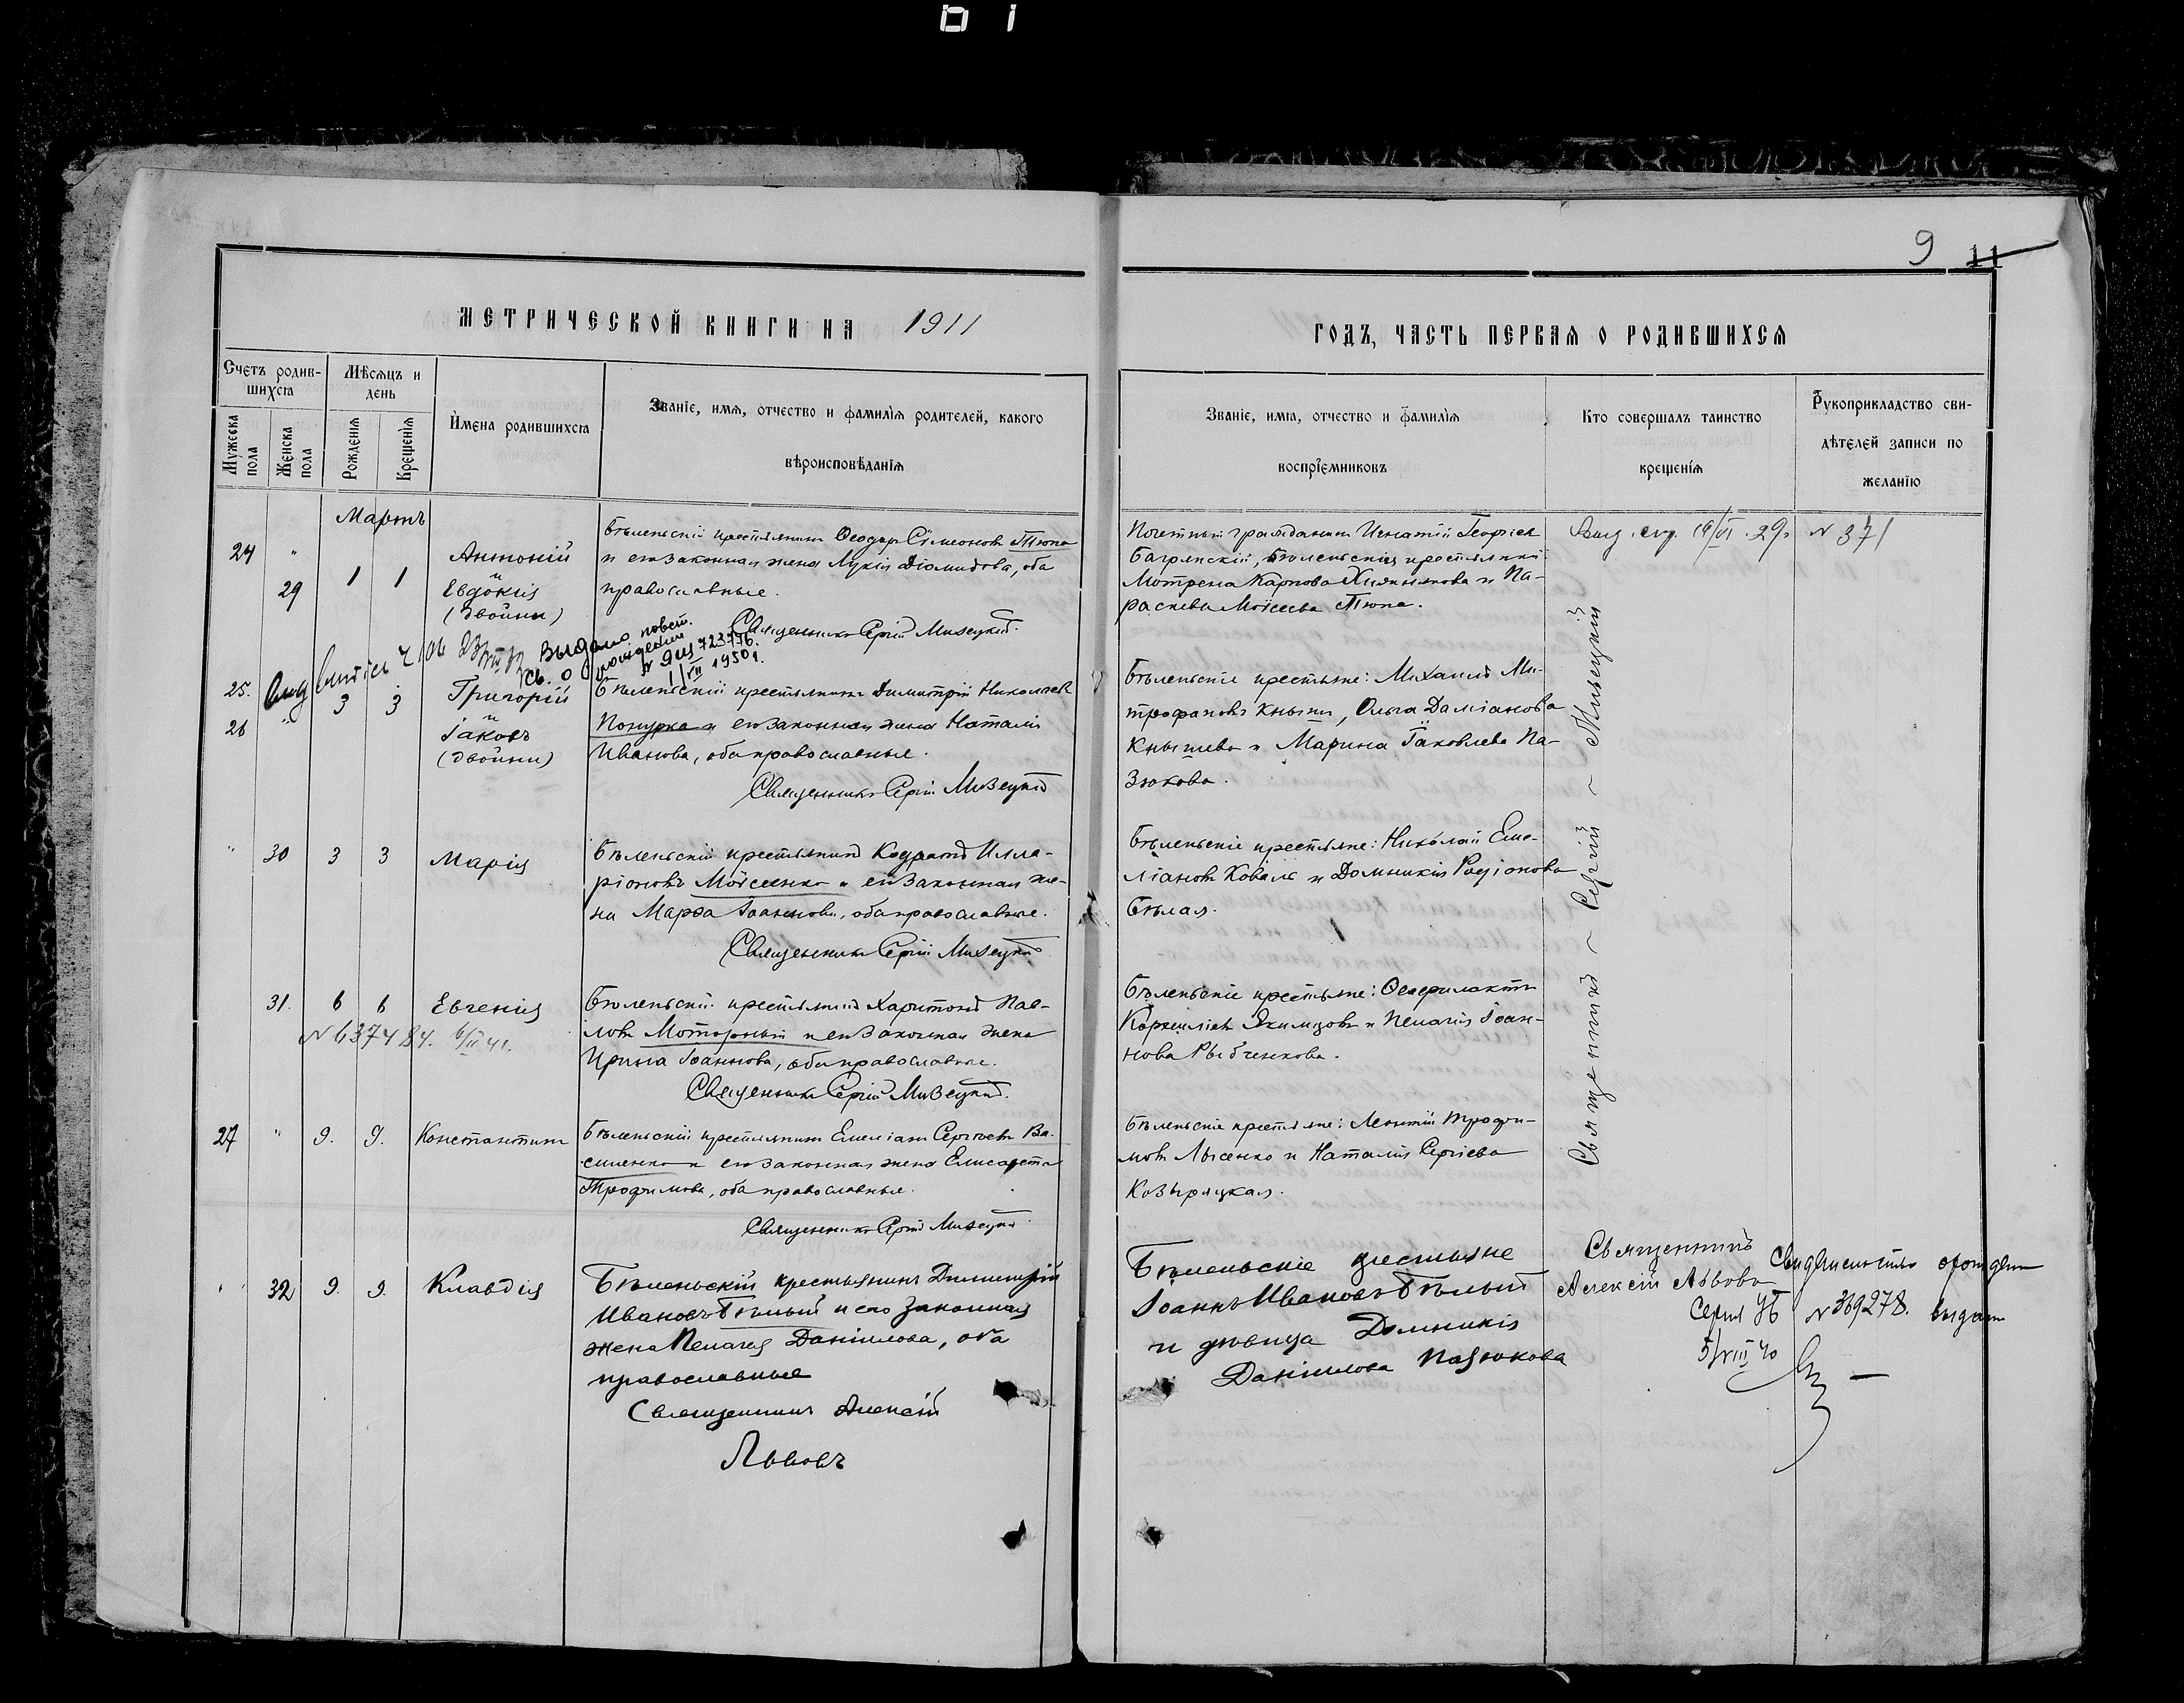 9 11
МЕТРИЧЕСКОЙ КНИГИ НА 1911
ГОДЪ, ЧАСТЬ ПЕРВАЯ О РОДИВШИХСЯ
Счетъ родив-
шихся
Мѣсяцъ и
день
Мужеска
пола
Женска
пола
Рожденія
Крещенія
Имена родившихся
Званіе, имя, отчество и фамилія родителей, какого
вѣроисповѣданія
Званіе, имя, отчество и фамилія
воспріемниковъ
Кто совершалъ таинство
крещенія
Рукоприкладство сви-
дѣтелей записи по
желанію
Мартъ
24 "
29 1 1
Антоній
и
Евдокія
(двойни)
Бѣленьскій крестьянинъ Ѳеодоръ Сѵмеоновъ Тюпа
и его законная жена Лукія Діомидова, оба
православные.
Священникъ Сергій Мизецкій.
Почетный гражданинъ Игнатій Георгіев
Багрянскій, Бѣленьскія крестьянки
Мотрона Карпова и Па-
раскева Моѵсеева Тюпа.
Выд. 19/VI 29. № 371
Выдано повт.
св. о рождении
723776
11/VII 1950 г.
25. 3 3
26 "
Григорій
и
Іаковъ
(двойни)
Бѣленьскій крестьянинъ Димитрій Николаевъ
и его законная жена Наталія
Иванова, оба православные.
Священникъ Сергій Мизецкій
Бѣленьскіе крестьяне: Михаилъ Ми-
трофановъ Кнышъ, Ольга Даміанова
Кнышева и Марина Іаковлева Па-
зюкова.
" 30 3 3 Марія
Бѣленьскій крестьянинъ Кодратъ Илла-
ріоновъ Моѵсеенко и его законная же-
на Марѳа Іоаннова, оба православные.
Священникъ Сергій Мизецкій
Бѣленьскіе крестьяне: Николай Еме-
ліановъ Коваль и Домникія Родіонова
Бѣлая.
31. 6 6 Евгенія
№ 637484. 6/II 41.
Бѣленьскій крестьянинъ Харитонъ Пав-
ловъ Моторный и его законная жена
Ирина Іоаннова, оба православные.
Священникъ Сергій Мизецкій.
Бѣленьскіе крестьяне: Ѳеофилактъ
Корниліевъ Якимцовъ и Пелагія Іоан-
нова Рыбченкова.
27 " 9. 9. Константинъ
Бѣленьскій крестьянинъ Емеліанъ Сергіевъ Ва-
силенко и его законная жена Елисавета
Трофимова, оба православные.
Священникъ Сергій Мизецкій
Бѣленьскіе крестьяне: Леонтій Трофи-
мовъ Лысенко и Наталія Сергіева
Козыряцкая.
Священникъ ~ Сергій ~ Мизецкій
" 32 9. 9. Клавдія
Бѣленьскій крестьянинъ Димитрій
Ивановъ Бѣлый и его законная
жена Пелагея Даніилова, оба
православные
Священникъ Алексій
Львовъ
Бѣленьскіе крестьяне
Іоаннъ Ивановъ Бѣлый
и дѣвица Домникія
Даніилова Пазюкова
Священникъ
Алексій Львовъ
Свидетельство о рожден
Серия УБ № 369278. выдано
5/VIII 40